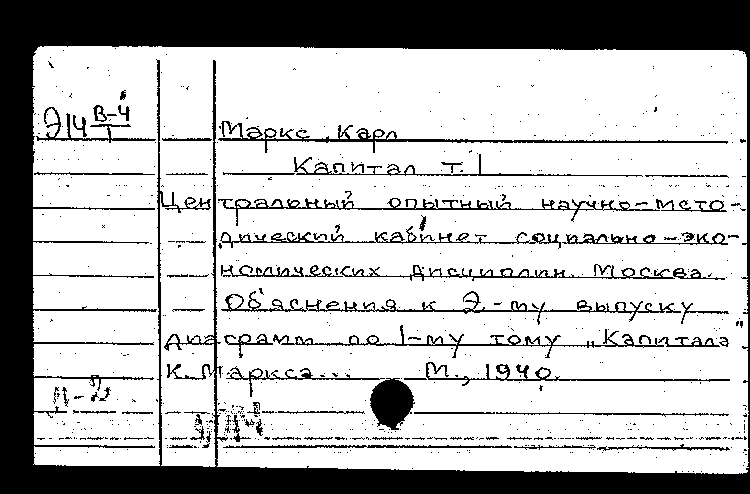 Э14 В-4/1
Маркс, Карл
Капитал т. 1
Центральный опытный научно-мето-
дический кабинет социально-эко-
номических дисциплин. Москва.
Об'яснения к 2-му выпуску
диаграмм по 1-му тому „Капитала"
К. Маркса... М., 1940.